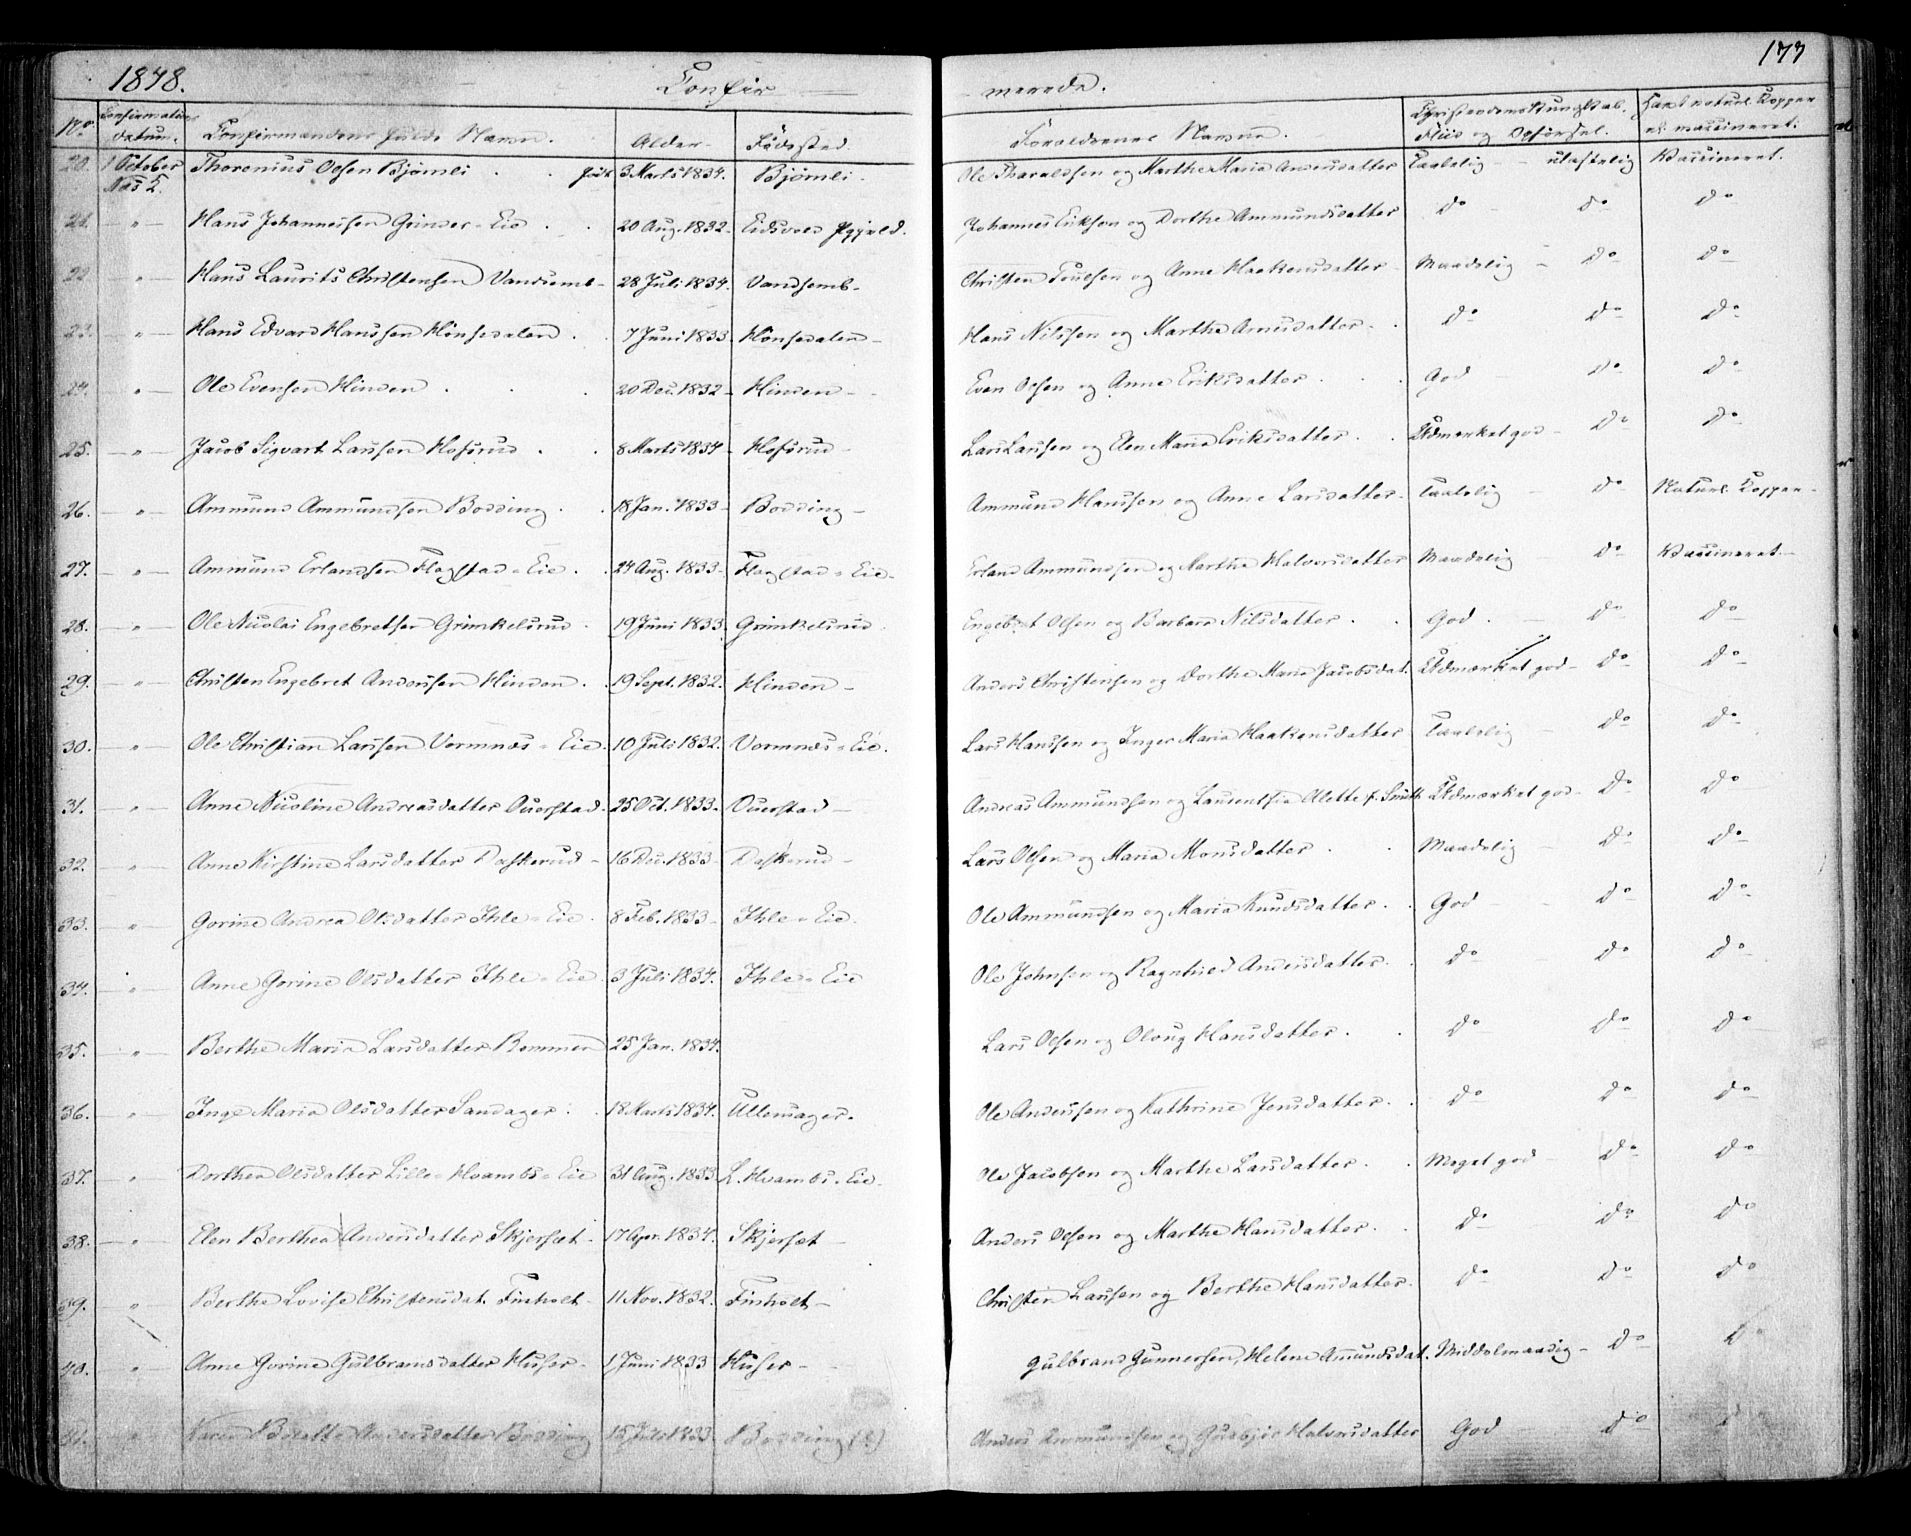 1848. Confir merede. 177
No. Confirmations datum. Confirmandens fulde Navn. Alder Fødested. Forældrenes Navne. Christendoms Kundskab, Fliid og Opførsel. Havt naturl. Kopper el. vaccineret.
20. 1 October Næs K. Thorenius Olsen Bjömli . . född 3 Marts 1834. Bjömli. Ole Tharaldsen og Marthe Maria Andersdatter Taalelig – ulastelig Vaccineret.
21. – " – Hans Johannessen Grinder-Eie . . 20 Aug. 1832 – Eidsvold Johannes Erikson og Dorthe Ammundsdatter do – do do
22. – " – Hans Laurits Christensen Vandsemb – 28 Juli 1834. Vandsemb – Christen Poulsen og Anne Haakensdatter – Maadelig – do do
23. – " – Hans Edvard Hanssen Hönsedalen . . 7 Juni 1833 Hönsedalen – Hans Nilssen og Marthe Arnesdatter . . do do do
24. – " – Ole Evensen Hinden . . . 20 Dec. 1832 – Hinden – Even Olsen og Anne Eriksdatter . . . God – do do
25. – " – Jacob Sigvart Larssen Hofsrud . . 8 Marts 1834 – Hofsrud – Lars Larssen og Elen Maria Eriksdatter . . Udmærket god – do do
26. – " – Ammund Ammundsen Bodding . . 18 Jan. 1833 – Bodding – Ammund Hanssen og Anne Larsdatter – Taalelig – do Naturl. Kopper –
27. – " – Ammund Erlandsen Flagstad-Eie . . 24 Aug. 1833 – Flagstad-Eie – Erland Ammundsen og Marthe Halvorsdatter Maadelig – do Vaccineret –
28. – " – Ole Nicolai Engebretsen Grimkelsrud . 19 Juni 1833 Grimkelsrud . Engebret Olsen og Barbara Nilsdatter . . God . – do do
29. – " – Christen Engebret Anderssen Hinden . . 19 Sept. 1832. Hinden – Anders Christensen og Dorthe Maria Jacobsdat. Udmærket god – do do
30. – " – Ole Christian Larssen Vormnæs-Eie . 10 Juli 1832. Vormnæs-Eie. Lars Hanssen og Inger Maria Haakensdatter Taalelig – do do
31. – " – Anne Nicoline Andreasdatter Ouerstad . 25 Oct. 1833 . Ouerstad – Andreas Ammundsen og Laurentsia Alette f. Smith Udmærket god – do do
32. – " – Anne Kirstine Larsdatter Daskerud – 16 Dec. 1833 – Daskerud – Lars Olsen og Maria Monsdatter . . Maadelig – do do
33. – " – Gorine Andrea Olsdatter Ihle-Eie . 8 Feb. 1833 – Ihle-Eie . Ole Ammundsen og Maria Knudsdatter . . God – – do do
34. – " – Anne Gorine Olsdatter Ihle-Eie . 3 Juli 1834. Ihle-Eie Ole Johnsen og Ragnhild Andersdatter . . do – do do
35. – " – Berthe Maria Larsdatter Rommen 25 Jan. 1834. Lars Olsen og Oloug Hansdatter . . do do do
36. – " – Inge Maria Olsdatter Sandager . . 18 Marts 1834. Ullensager. Ole Anderssen og Kathrine Jensdatter . . do do do
37. – " – Dorthea Olsdatter Lille-Hvambs-Eie 31 Aug. 1833 L. Hvambs-Eie. Ole Jacobsen og Marthe Larsdatter . . Meget god – do do
38. – " – Elen Berthea Andersdatter Skjerset . 17 Apr. 1834. Skjerset – Anders Olsen og Marthe Hansdatter . . do do do
39. " Berthe Lovise Christensdat. Finholt – 11 Nov. 1832. Finholt – Christen Larssen og Berthe Hansdatter . do do do
40. " Anne Gorine Gulbransdatter Huser – 1 Juni 1833 Huser – Gulbrand Gunnersen, Helene Amundsdat. Middelmaadig – do do
41. " Karen Andersdatter Bodding 15 Juli 1833 Bodding Anders Ammundsen og Halvorsdatter God – do do